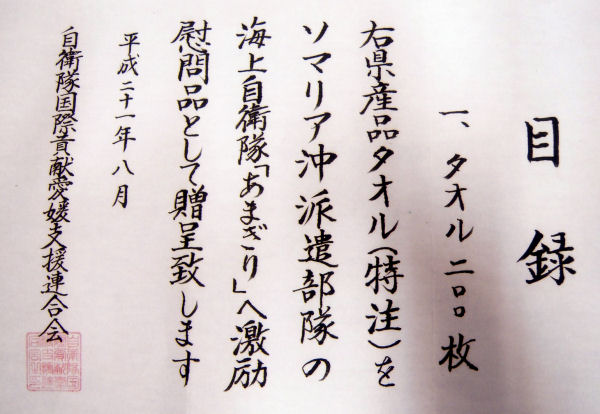 目録
一、タオル二〇〇枚
右県産品タオル(特注)を
ソマリア沖派遣部隊の
海上自衛隊「あまぎり」へ激励
慰問品として贈呈致します
平成二十一年八月
自衛隊国際貢献愛媛支援連合会